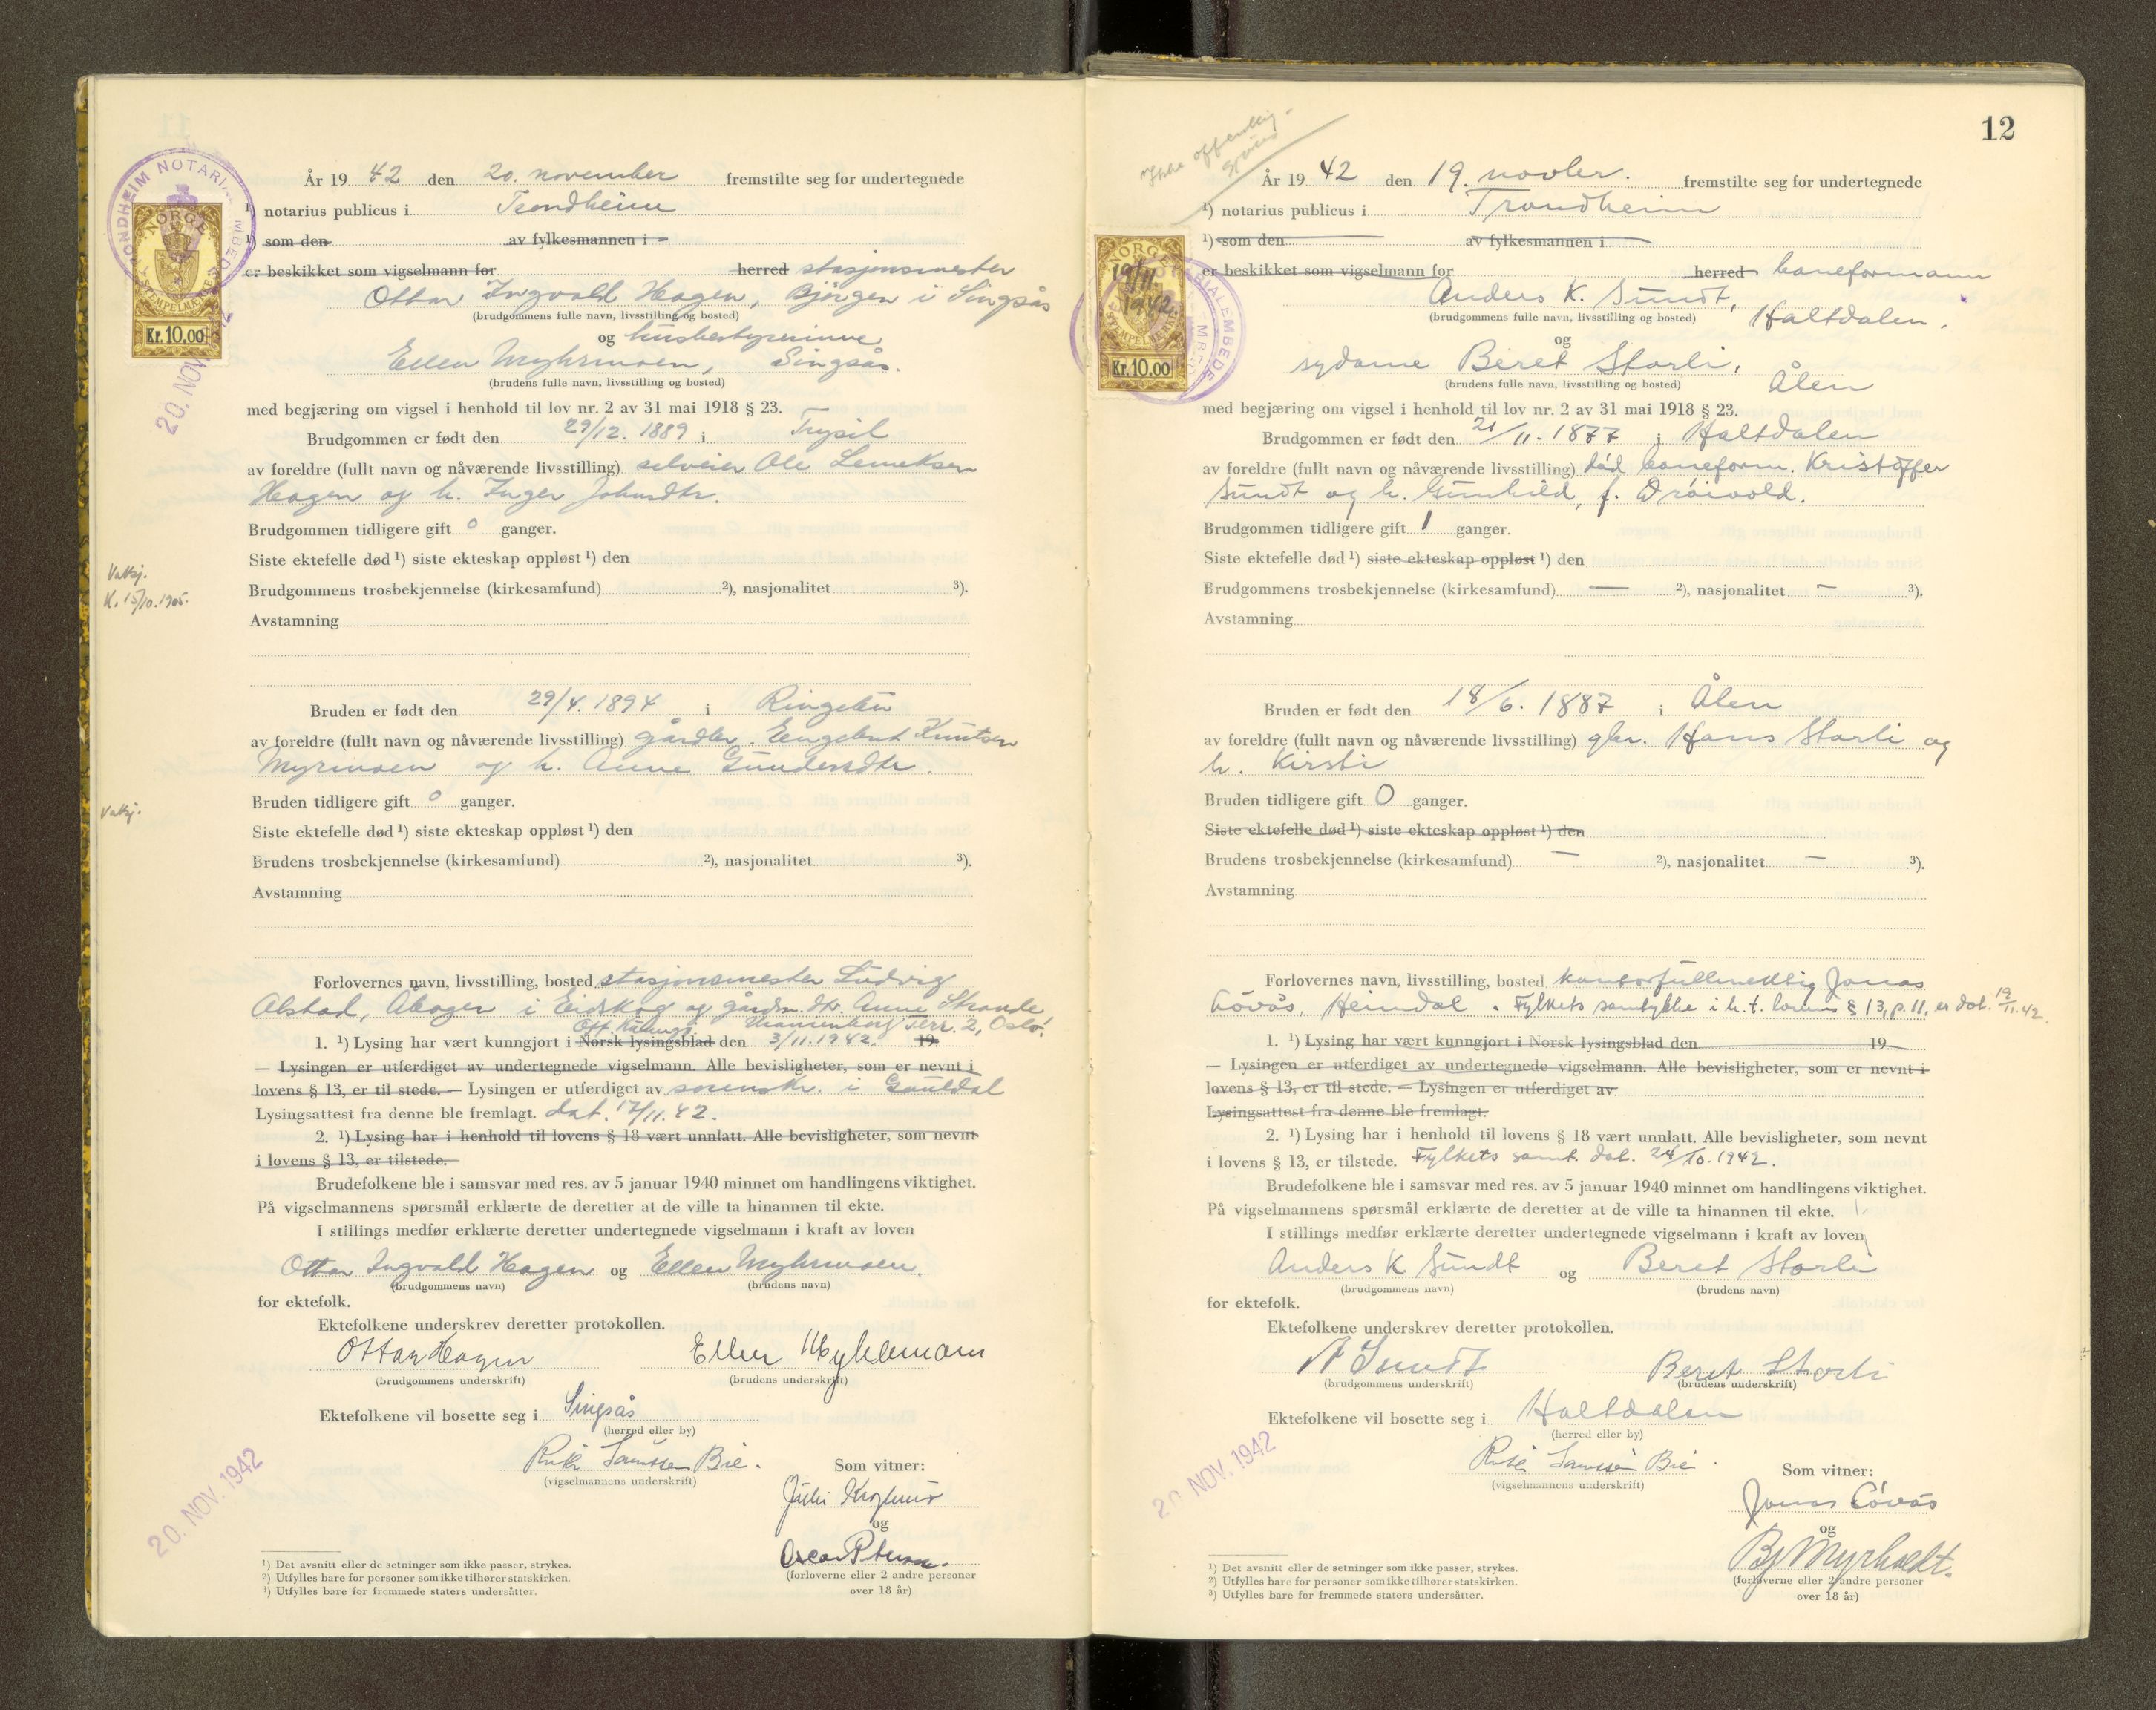 År 19 42 den 20. november fremstilte seg for undertegnede
¹) notarius publicus i Trondheim
¹) som den av fylkesmannen i
er beskikket som vigselmann for herred stasjonsmester
Ottar Ingvald Hagen, Bjørgen i Singsås
(brudgommens fulle navn, livsstilling og bosted)
og husbestyrerinne
Ellen Myhrmoen, Singsås.
(brudens fulle navn, livsstilling og bosted)
med begjæring om vigsel i henhold til lov nr. 2 av 31 mai 1918 § 23.
Brudgommen er født den 29/12. 1889 i Trysil
av foreldre (fullt navn og nåværende livsstilling) selveier Ole
Hagen og h. Inger Johnsdtr.
Brudgommen tidligere gift 0 ganger.
Siste ektefelle død ¹) siste ekteskap oppløst ¹) den
Vaksj.
K. 15/10.1905.
Brudgommens trosbekjennelse (kirkesamfund) ²), nasjonalitet ³).
Avstamning
Bruden er født den 29/4. 1894 i Ringebu
av foreldre (fullt navn og nåværende livsstilling) gårdbr. Engebret Knutsen
Myrmoen og h. Anne Gundersdtr.
Vaksj.
Bruden tidligere gift 0 ganger.
Siste ektefelle død ¹) siste ekteskap oppløst ¹) den
Brudens trosbekjennelse (kirkesamfund) ²), nasjonalitet ³).
Avstamning
Forlovernes navn, livsstilling, bosted stasjonsmester Ludvig
Alstad, Åbogen i Eidskog og gårdm. dtr. Anne Strande
Off. Kunngj. Uranienborg Terr. 2, Oslo.
1. ¹) Lysing har vært kunngjort i Norsk lysingsblad den 3/11.1942. 19
— Lysingen er utferdiget av undertegnede vigselmann. Alle bevisligheter, som er nevnt i
lovens § 13, er til stede. — Lysingen er utferdiget av sorenskr. i Gauldal
Lysingsattest fra denne ble fremlagt. dat. 17/11.42.
2. ¹) Lysing har i henhold til lovens § 18 vært unnlatt. Alle bevisligheter, som nevnt
i lovens § 13, er tilstede.
Brudefolkene ble i samsvar med res. av 5 januar 1940 minnet om handlingens viktighet.
På vigselmannens spørsmål erklærte de deretter at de ville ta hinannen til ekte.
I stillings medfør erklærte deretter undertegnede vigselmann i kraft av loven
Ottar Ingvald Hagen og Ellen Myhrmoen.
(brudgommens navn) (brudens navn)
for ektefolk.
Ektefolkene underskrev deretter protokollen.
Ottar Hagen Ellen Myhrmoen
(brudgommens underskrift) (brudens underskrift)
Ektefolkene vil bosette seg i Singsås
(herred eller by)
Bie. Som vitner:
(vigselmannens underskrift)
og
Oscar
(forloverne eller 2 andre personer
over 18 år)
20. NOV. 1942
¹) Det avsnitt eller de setninger som ikke passer, strykes.
²) Utfylles bare for personer som ikke tilhører statskirken.
³) Utfylles bare for fremmede staters undersåtter.
TRONDHEIM NOTARI MBEDE
NORGE
STEMPELMERKE
Kr. 10,00
20. NOV
12
Ikke offentlig-
gjøres
År 19 42 den 19. novbr. fremstilte seg for undertegnede
¹) notarius publicus i Trondheim
¹) som den av fylkesmannen i
er beskikket som vigselmann for herred baneformann
Anders K. Sundt,
(brudgommens fulle navn, livsstilling og bosted) Haltdalen.
og
sydame Beret Storli,
(brudens fulle navn, livsstilling og bosted) Ålen
med begjæring om vigsel i henhold til lov nr. 2 av 31 mai 1918 § 23.
Brudgommen er født den 21/11. 1877 i Haltdalen
av foreldre (fullt navn og nåværende livsstilling) død baneform. Kristoffer
Sundt og h. Gunhild, f. Drøivold.
Brudgommen tidligere gift 1 ganger.
Siste ektefelle død ¹) siste ekteskap oppløst ¹) den
Brudgommens trosbekjennelse (kirkesamfund) — ²), nasjonalitet — ³).
Avstamning
Bruden er født den 18/6. 1887 i Ålen
av foreldre (fullt navn og nåværende livsstilling) gbr. Hans Storli og
h. Kirsti
Bruden tidligere gift 0 ganger.
Siste ektefelle død ¹) siste ekteskap oppløst ¹) den
Brudens trosbekjennelse (kirkesamfund) — ²), nasjonalitet — ³).
Avstamning
Forlovernes navn, livsstilling, bosted kontorfullmektig Jonas
Løvås, Heimdal. Fylkets samtykke i h. t. lovens § 13, p. 11, er dat. 19/11.42.
1. ¹) Lysing har vært kunngjort i Norsk lysingsblad den 19
— Lysingen er utferdiget av undertegnede vigselmann. Alle bevisligheter, som er nevnt i
lovens § 13, er til stede. — Lysingen er utferdiget av
Lysingsattest fra denne ble fremlagt.
2. ¹) Lysing har i henhold til lovens § 18 vært unnlatt. Alle bevisligheter, som nevnt
i lovens § 13, er tilstede. Fylkets samt. dat. 24/10.1942.
Brudefolkene ble i samsvar med res. av 5 januar 1940 minnet om handlingens viktighet.
På vigselmannens spørsmål erklærte de deretter at de ville ta hinannen til ekte.
I stillings medfør erklærte deretter undertegnede vigselmann i kraft av loven
Anders K Sundt og Beret Storli
(brudgommens navn) (brudens navn)
for ektefolk.
Ektefolkene underskrev deretter protokollen.
A Sundt Beret Storli
(brudgommens underskrift) (brudens underskrift)
Ektefolkene vil bosette seg i Haltdalen
(herred eller by)
Bie. Som vitner:
(vigselmannens underskrift)
Jonas Løvås
og
Bj Myrholdt.
(forloverne eller 2 andre personer
over 18 år)
20 NOV. 1942
¹) Det avsnitt eller de setninger som ikke passer, strykes.
²) Utfylles bare for personer som ikke tilhører statskirken.
³) Utfylles bare for fremmede staters undersåtter.
NORGE
19/11.
1942.
STEMPELMERKE
Kr. 10,00
RIALEMBEDE